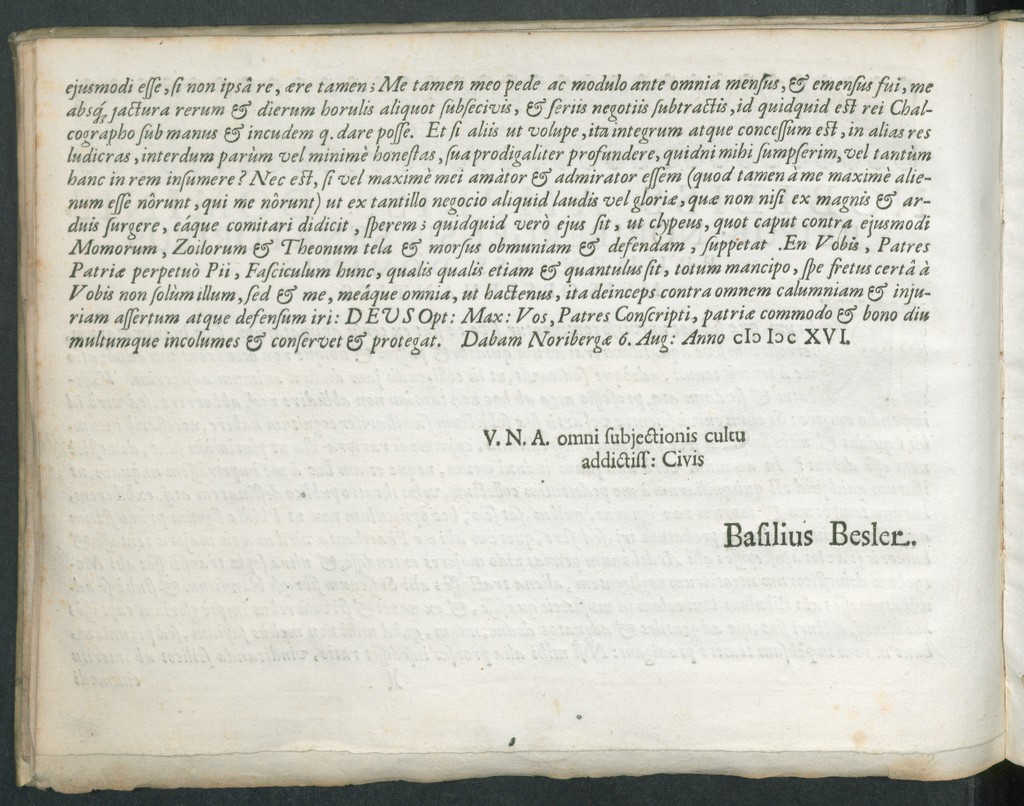 ejusmodi eſſe, ſi non ipsâ re, ære tamen; Me tamen meo pede ac modulo ante omnia menſus, & emenſus fui, me
absq́; jactura rerum & dierum horulis aliquot ſubſecivis, & ſeriis negotiis ſubtractis, id quidquid eſt rei Chal-
cographo ſub manus & incudem q. dare poſſe. Et ſi aliis ut volupe, ita integrum atque conceſſum eſt, in alias res
ludicras, interdum parùm vel minimè honeſtas, ſua prodigaliter profundere, quidni mihi ſumpſerim, vel tantùm
hanc in rem inſumere? Nec eſt, ſi vel maximè mei amàtor & admirator eſſem (quod tamen à me maximè alie-
num eſſe nòrunt, qui me nòrunt) ut ex tantillo negocio aliquid laudis vel gloriæ, quæ non niſi ex magnis & ar-
duis ſurgere, eáque comitari didicit, ſperem; quidquid verò ejus ſit, ut clypeus, quot caput contra ejusmodi
Momorum, Zoilorum & Theonum tela & morſus obmuniam & defendam, ſuppetat. En Vobis, Patres
Patriæ perpetuò Pii, Faſciculum hunc, qualis qualis etiam & quantulus ſit, totum mancipo, ſpe fretus certâ à
Vobis non ſolùm illum, ſed & me, meáque omnia, ut hactenus, ita deinceps contra omnem calumniam & inju-
riam aſſertum atque defenſum iri: DEVS Opt: Max: Vos, Patres Conſcripti, patriæ commodo & bono diu
multumque incolumes & conſervet & protegat. Dabam Noribergæ 6. Aug: Anno cIↄ Iↄc XVI.
V. N. A. omni ſubjectionis cultu
addictiſſ: Civis
Baſilius Besler.